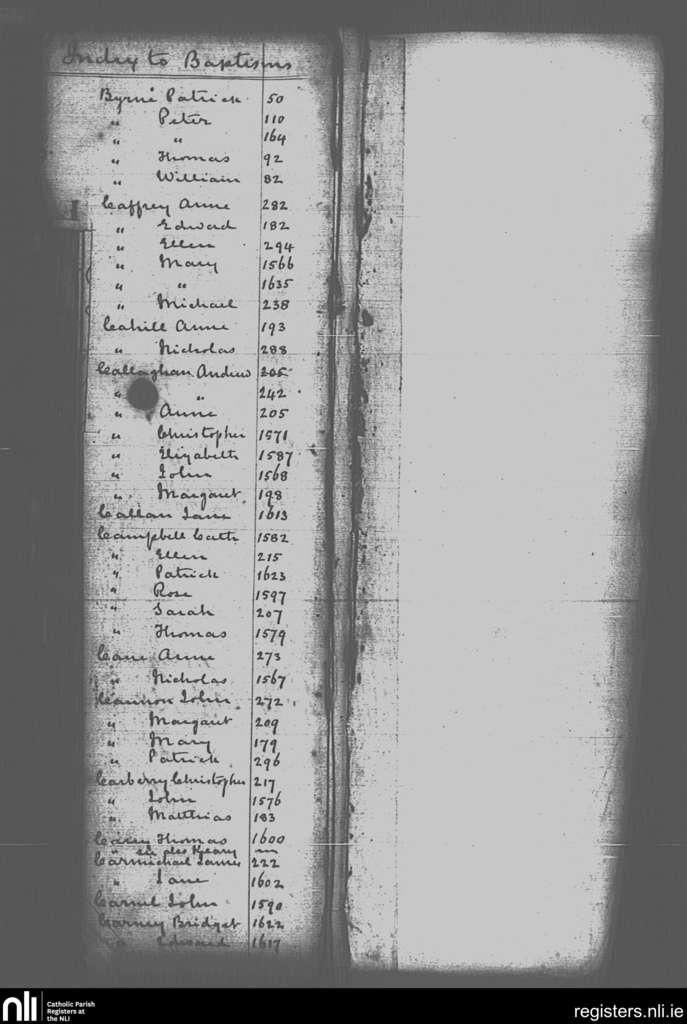 Index to Baptisms
Byrne Patrick 50
" Peter 110
" " 164
" Thomas 92
" William 82
Caffrey Anne 282
" Edward 182
" Ellen 294
" Mary 1566
" " 1635
" Michael 238
Cahill Anne 193
" Nicholas 288
Callaghan Andrew 205
" " 242
" Anne 205
" Christopher 1571
" Elizabeth 1587
" John 1568
" Margaret 198
Callan Jane 1613
Campbell Cath 1582
" Ellen 215
" Patrick 1623
" Rose 1597
" Sarah 207
" Thomas 1579
Cane Anne 273
" Nicholas 1567
Cannon John 272
" Margaret 209
" Mary 179
" Patrick 296
Carberry Christopher 217
" John 1576
" Matthias 183
Carey Thomas 1600
" see also Keary
Carmichael James 222
" Jane 1602
John 1590
Carney Bridget 1622
" Edward 1617
nli Catholic Parish
Registers at
the NLI
registers.nli.ie